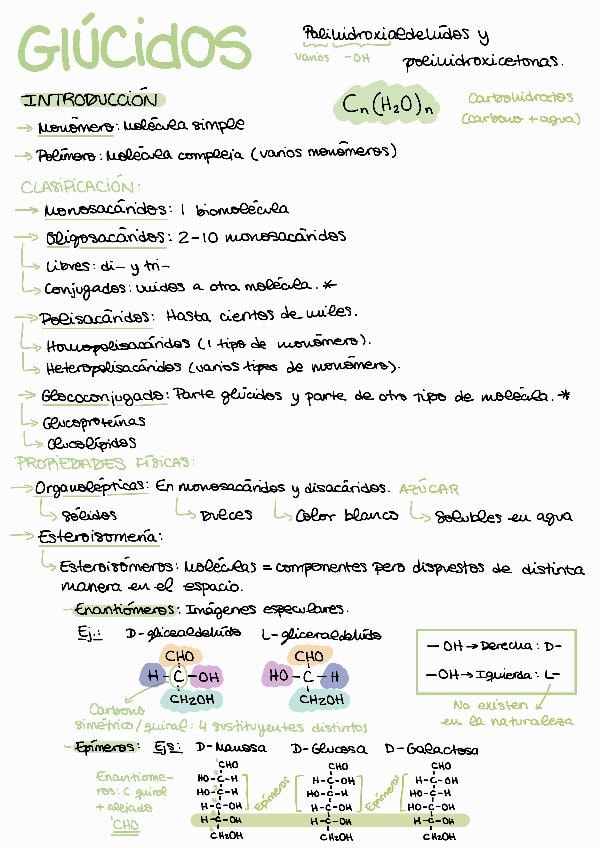 Glúcidos
Polihidroxialdehídos y
varios -OH
polihidroxicetonas.
INTRODUCCIÓN
Cn(H2O)n
Carbohidratos
(carbono + agua)
→ Monómero: Molécula simple
→ Polímero: Molécula compleja (varios monómeros)
CLASIFICACIÓN:
→ Monosacáridos: 1 biomolécula
→ Oligosacáridos: 2-10 monosacáridos
Libres: di- y tri-
Conjugados: unidos a otra molécula. *
→ Polisacáridos: Hasta cientos de miles.
Homopolisacáridos (1 tipo de monómero).
Heteropolisacáridos (varios tipos de monómero).
→ Glococonjugado: Parte glúcidos y parte de otro tipo de molécula. *
Glucoproteínas
Glucolípidos
PROPIEDADES FÍSICAS:
→ Organolépticas: En monosacáridos y disacáridos. AZÚCAR
Sólidos Dulces Color blanco Solubles en agua
→ Esteroisomería:
Esteroisómeros: Moléculas = componentes pero dispuestos de distinta
manera en el espacio.
- Enantiómeros: Imágenes especulares.
Ej.: D-glicealdehído L-gliceraldehído
CHO CHO
H-C-OH HO-C-H
CH2OH CH2OH
-OH → Derecha: D-
-OH → Izquierda: L-
No existen
en la naturaleza
Carbono
simétrico/quiral: 4 sustituyentes distintos
- Epímeros: Ejs: D-Manosa D-Glucosa D-Galactosa
Enantióme-
ros: C quiral
+ alejado
CHO
CHO CHO CHO
HO-C-H H-C-OH H-C-OH
HO-C-H HO-C-H HO-C-H
H-C-OH H-C-OH HO-C-H
H-C-OH H-C-OH H-C-OH
CH2OH CH2OH CH2OH
Epímeros
Epímeros